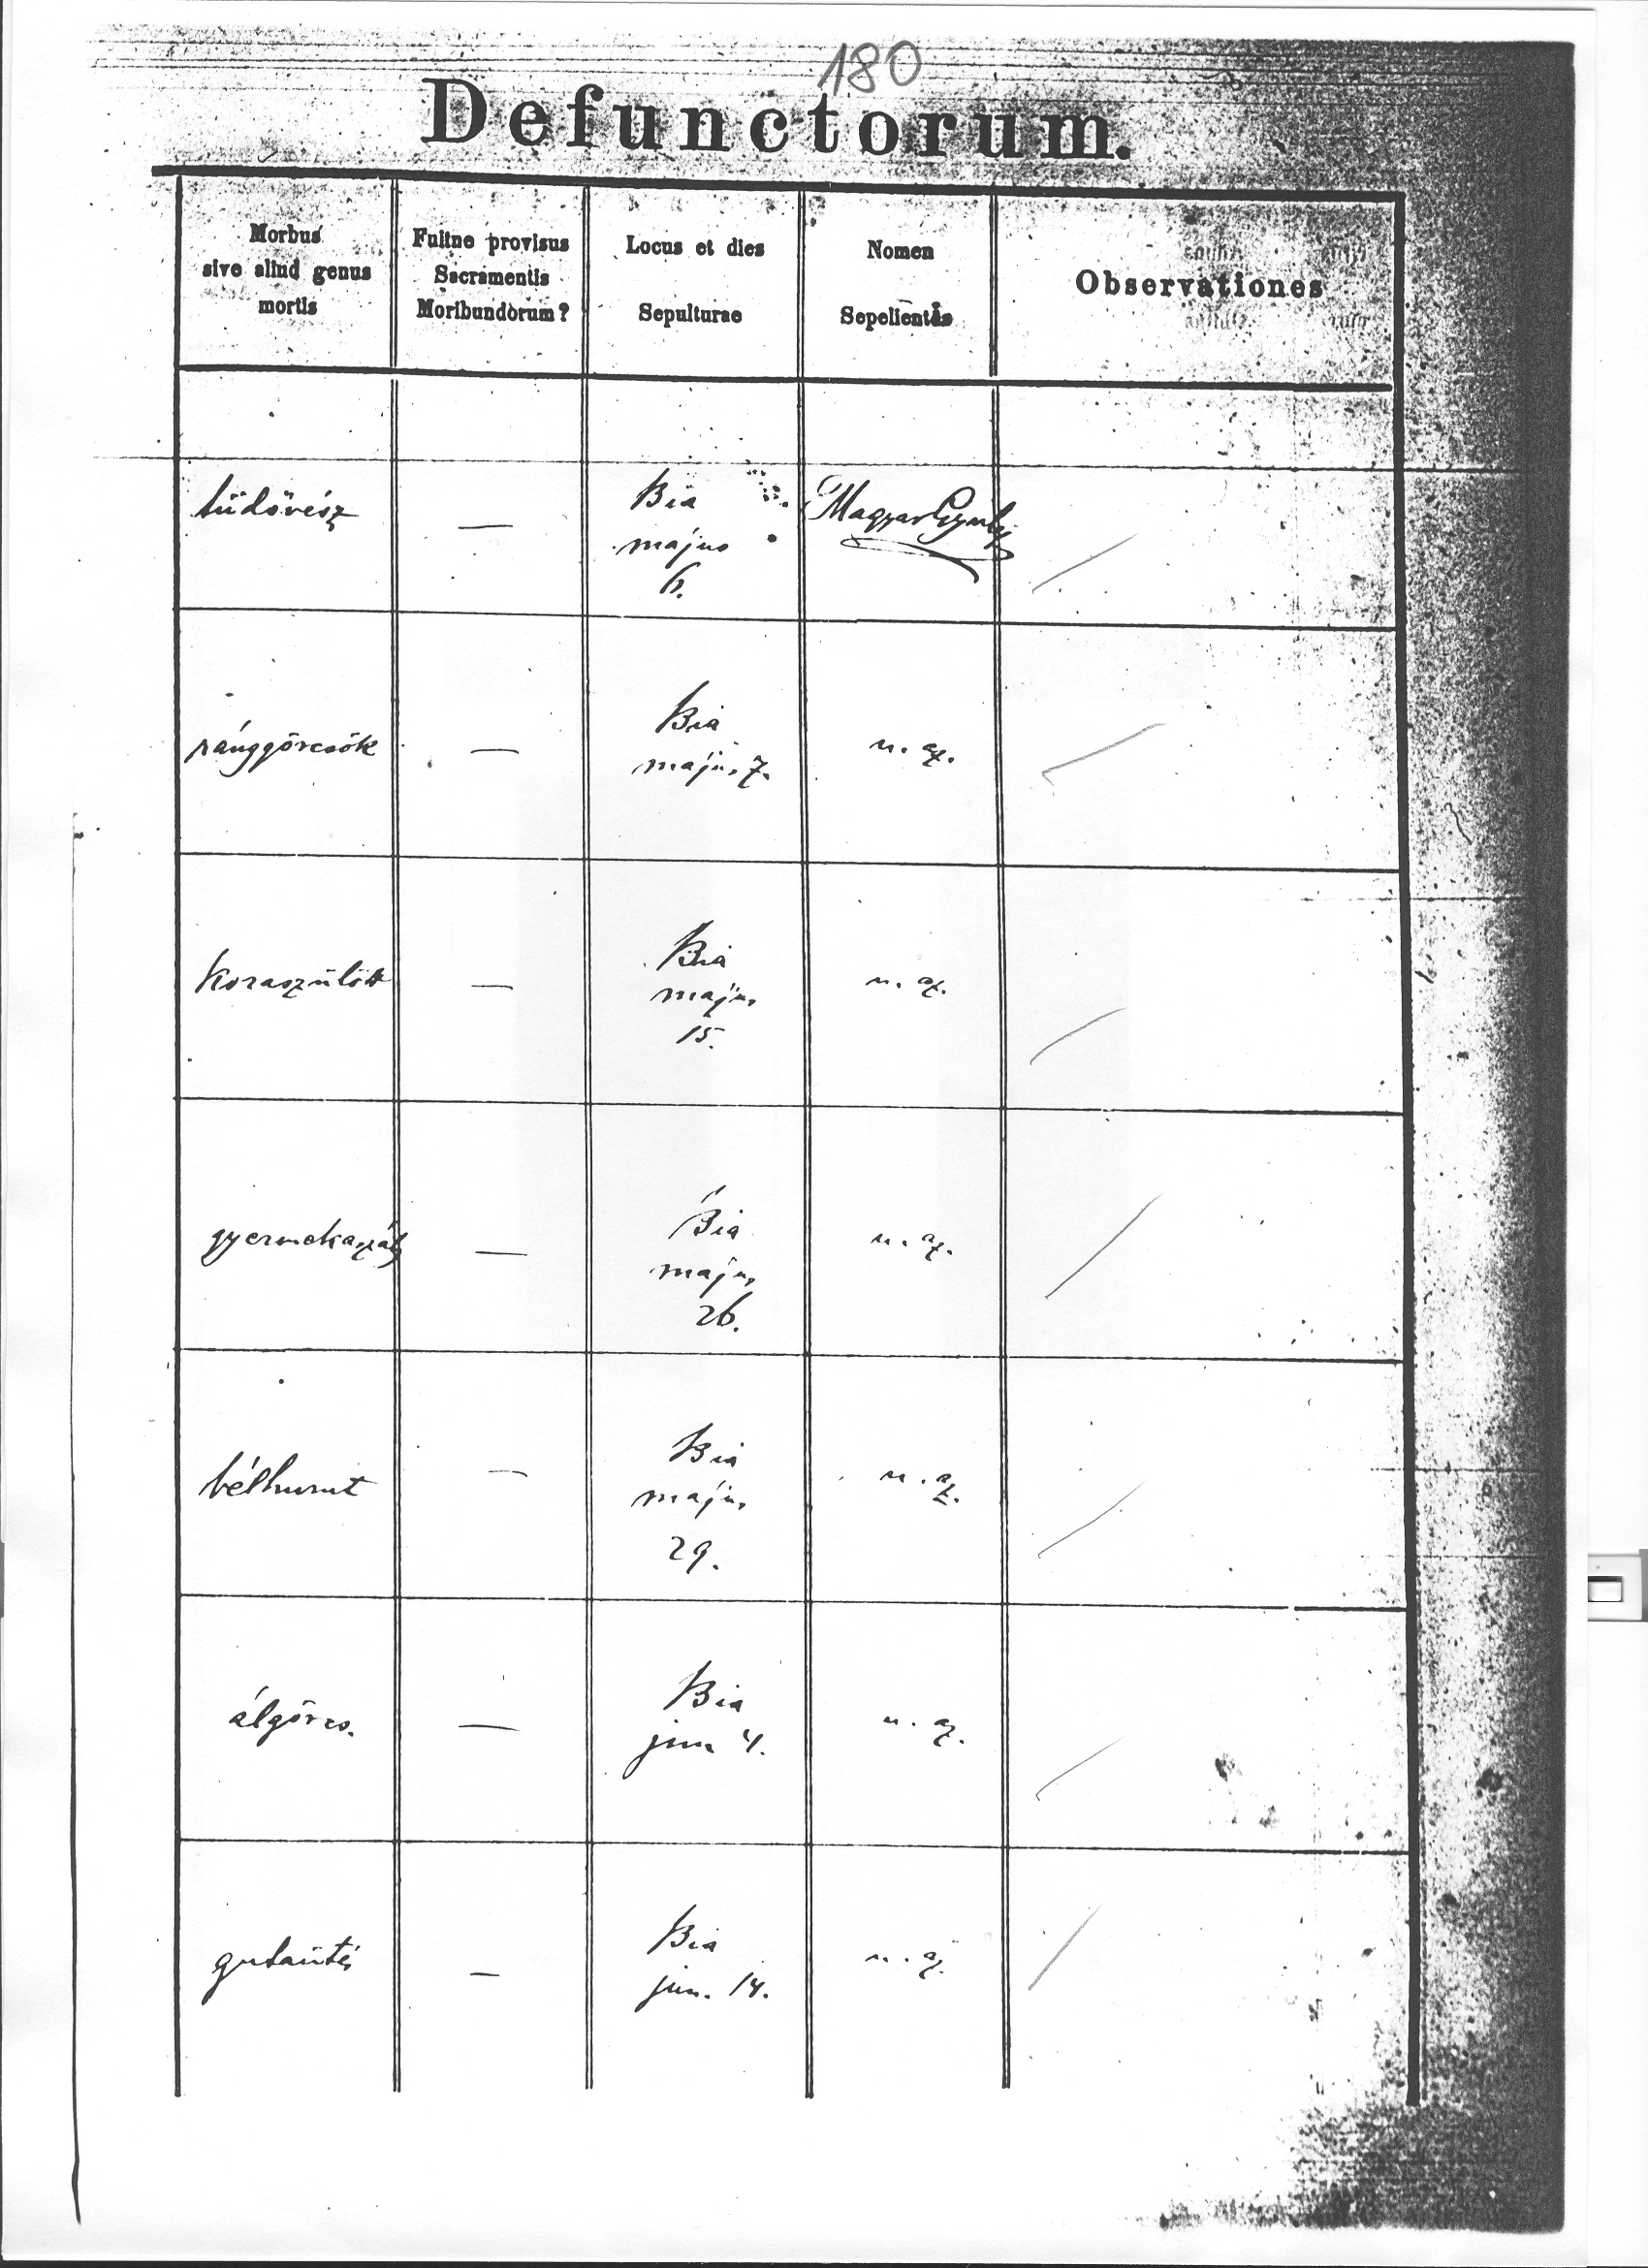 180
Defunctorum.
Morbus
sive aliud genus
mortis
Fuitne provisus
Sacramentis
Moribundorum?
Locus et dies
Sepulturae
Nomen
Sepelientis
Observationes
tüdővész
—
Bia
május
6.
Magyar Gyula
ránggörcsök
—
Bia
május 7.
u. az.
koraszülött
—
Bia
május
15.
u. az.
gyermekaszály
—
Bia
május
26.
u. az.
bélhurut
—
Bia
május
29.
u. az.
álgörcs.
—
Bia
jun 4.
u. az.
gutaütés
—
Bia
jun. 14.
u. az.